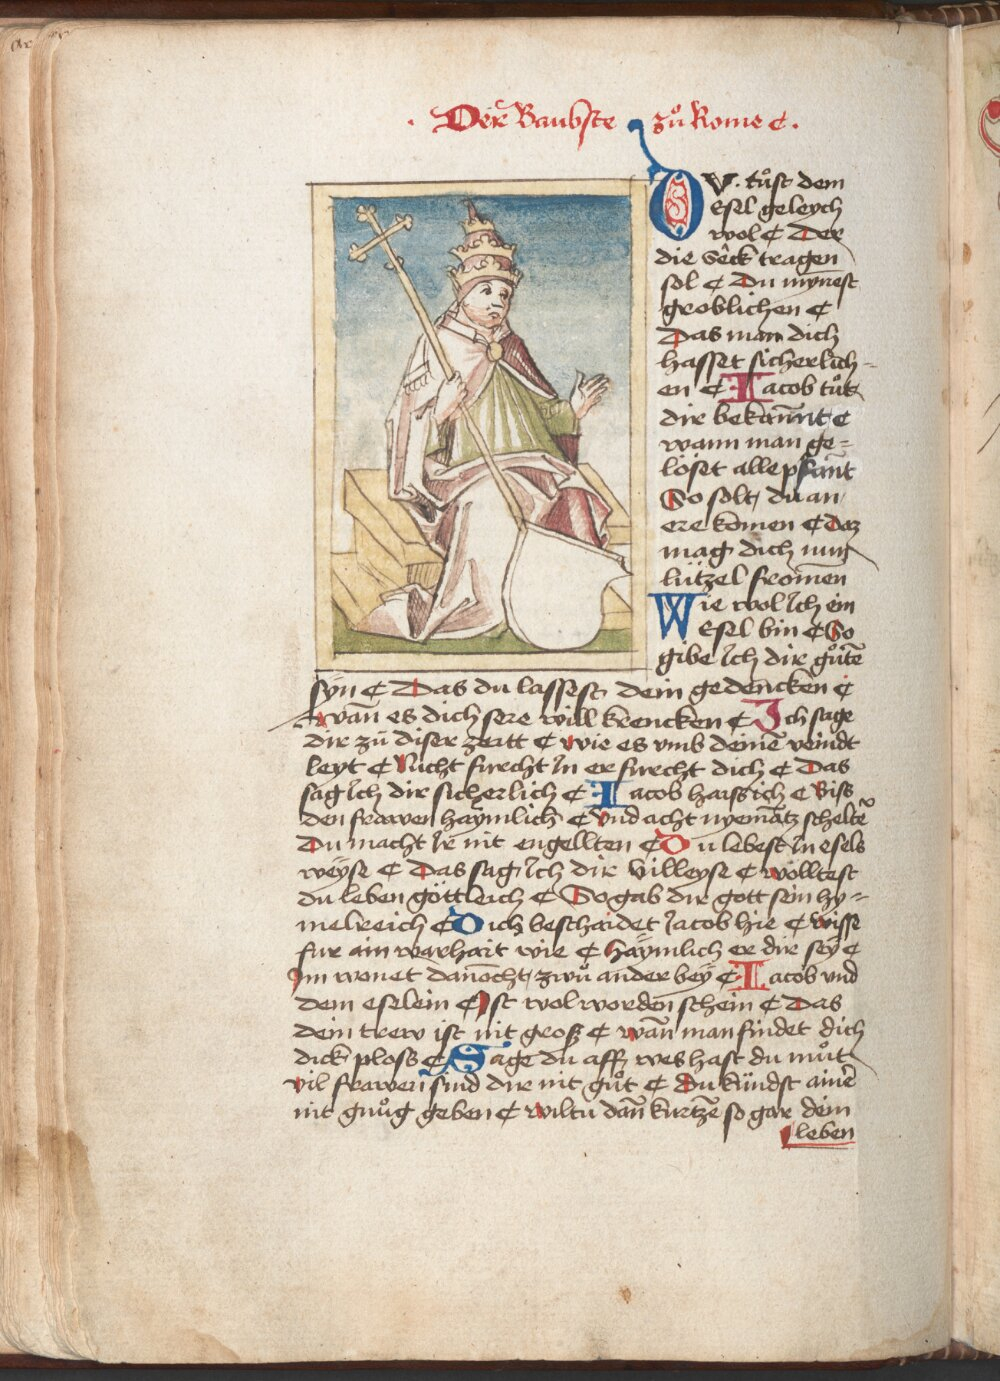 · Der Baubste zů Rome ¢ ·
DV · tůst dem
esel geleych
wol ¢ Der
die Seck tragen
sol ¢ Du mynest
groblichen ¢
Das man dich
hasset sicherlich=
en ¢ Iacob tůt
dir bekannt ¢
wann man ge=
löset alle pfant
So solt du an
ere komen ¢ Daz
mag dich nun
lützel fromen
Wie wol Ich ein
esel bin ¢ So
gibe Ich dir gůte
syn ¢ Das du lassest dein gedencken ¢
wan̄ es dich sere will krencken ¢ Ich sage
dir zů diser zeitt ¢ wie es vmb deine veindt
leyt ¢ Nicht furcht In er furcht dich ¢ Das
sag Ich dir sicherlich ¢ Iacob haiss ich ¢ Biss
den frawen haymlich ¢ Vnd acht nyematz schelte
Du macht Ir nit engellten ¢ Du lebest In esels
weyse ¢ Das sag Ich dir villeyse ¢ wolltest
du leben göttleich ¢ So gab dir gott sein hy=
melreich ¢ Dich beschaidet Iacob hie ¢ wisse
fur ain warhait wie ¢ haymlich er dir sey ¢
Im wonet dan̄ocht zwů ander bey ¢ Iacob vnd
dem eselein ¢ Ist wol worden schein ¢ Das
dem trew ist nit grosz ¢ wan̄ man findet dich
dick ploss ¢ Sage du aff wes hast du můt
vil frawen sind dir nit gůt ¢ Du kündst aine
nit gnůg geben ¢ wiltu dan̄ kurtze so gar dem
leben